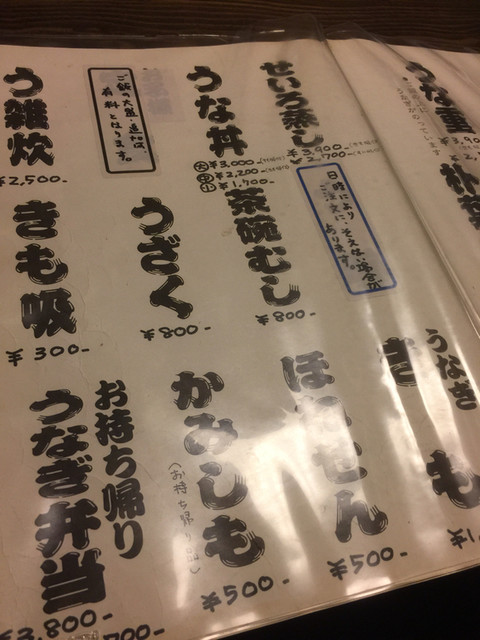 うな重
せいろ蒸し
¥3,900-
2,700-
うな丼
大 ¥3,000-
中 ¥2,200-
小 ¥1,700-
ご飯の大盛・追加は、
有料となります。
う雑炊
¥2,500-
日時により、そえない場合が
ご注文に
あります。
茶碗むし
¥800-
うざく
¥800-
きも吸
¥300-
うなぎ
ほねせん
¥500-
かみしも
(お持ち帰り品)
¥500-
お持ち帰り
うなぎ弁当
¥3,800-
700-